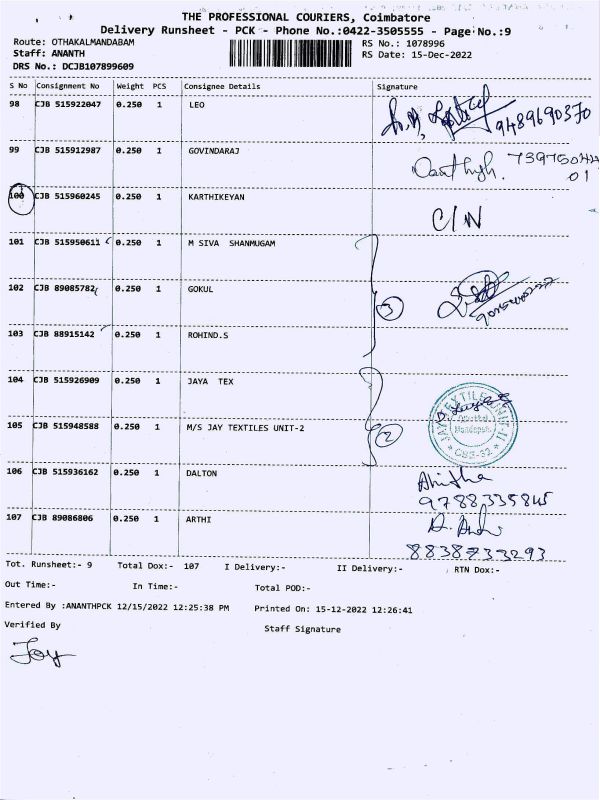 THE PROFESSIONAL COURIERS, Coimbatore
Delivery Runsheet - PCK - Phone No.:0422-3505555 - Page No.:9
Route: OTHAKALMANDABAM RS No.: 1078996
Staff: ANANTH RS Date: 15-Dec-2022
DRS No.: DCJB107899609
S No Consignment No Weight PCS Consignee Details Signature
98 CJB 515922047 0.250 1 LEO
9489690370
99 CJB 515912987 0.250 1 GOVINDARAJ
100 CJB 515960245 0.250 1 KARTHIKEYAN C/N
101 CJB 515950611 0.250 1 M SIVA SHANMUGAM
102 CJB 89085782 0.250 1 GOKUL
3
103 CJB 88915142 0.250 1 ROHIND.S
104 CJB 515926909 0.250 1 JAYA TEX
105 CJB 515948588 0.250 1 M/S JAY TEXTILES UNIT-2
2
106 CJB 515936162 0.250 1 DALTON Anitha
9788335845
107 CJB 89086806 0.250 1 ARTHI
8838733293
Tot. Runsheet:- 9 Total Dox:- 107 I Delivery:- II Delivery:- RTN Dox:-
Out Time:- In Time:- Total POD:-
Entered By :ANANTHPCK 12/15/2022 12:25:38 PM Printed On: 15-12-2022 12:26:41
Verified By Staff Signature
Joy